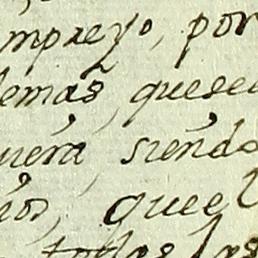 mpreyo, por
demas, quesee
uera, siendo
ños, queel
todas las